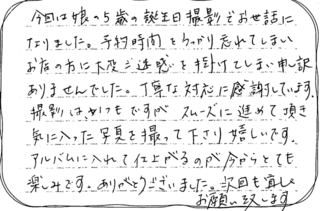 今回は娘の5歳の誕生日撮影でお世話に
なりました。予約時間をうっかり忘れてしまい
お店の方に大変ご迷惑を掛けてしまい申訳
ありませんでした。丁寧な対応に感謝しています。
撮影はいつもですがスムーズに進めて頂き
気に入った写真を撮って下さり嬉しいです。
アルバムに入れて仕上がるのが今からとても
楽しみです。ありがとうございました。次回も宜しく
お願い致します